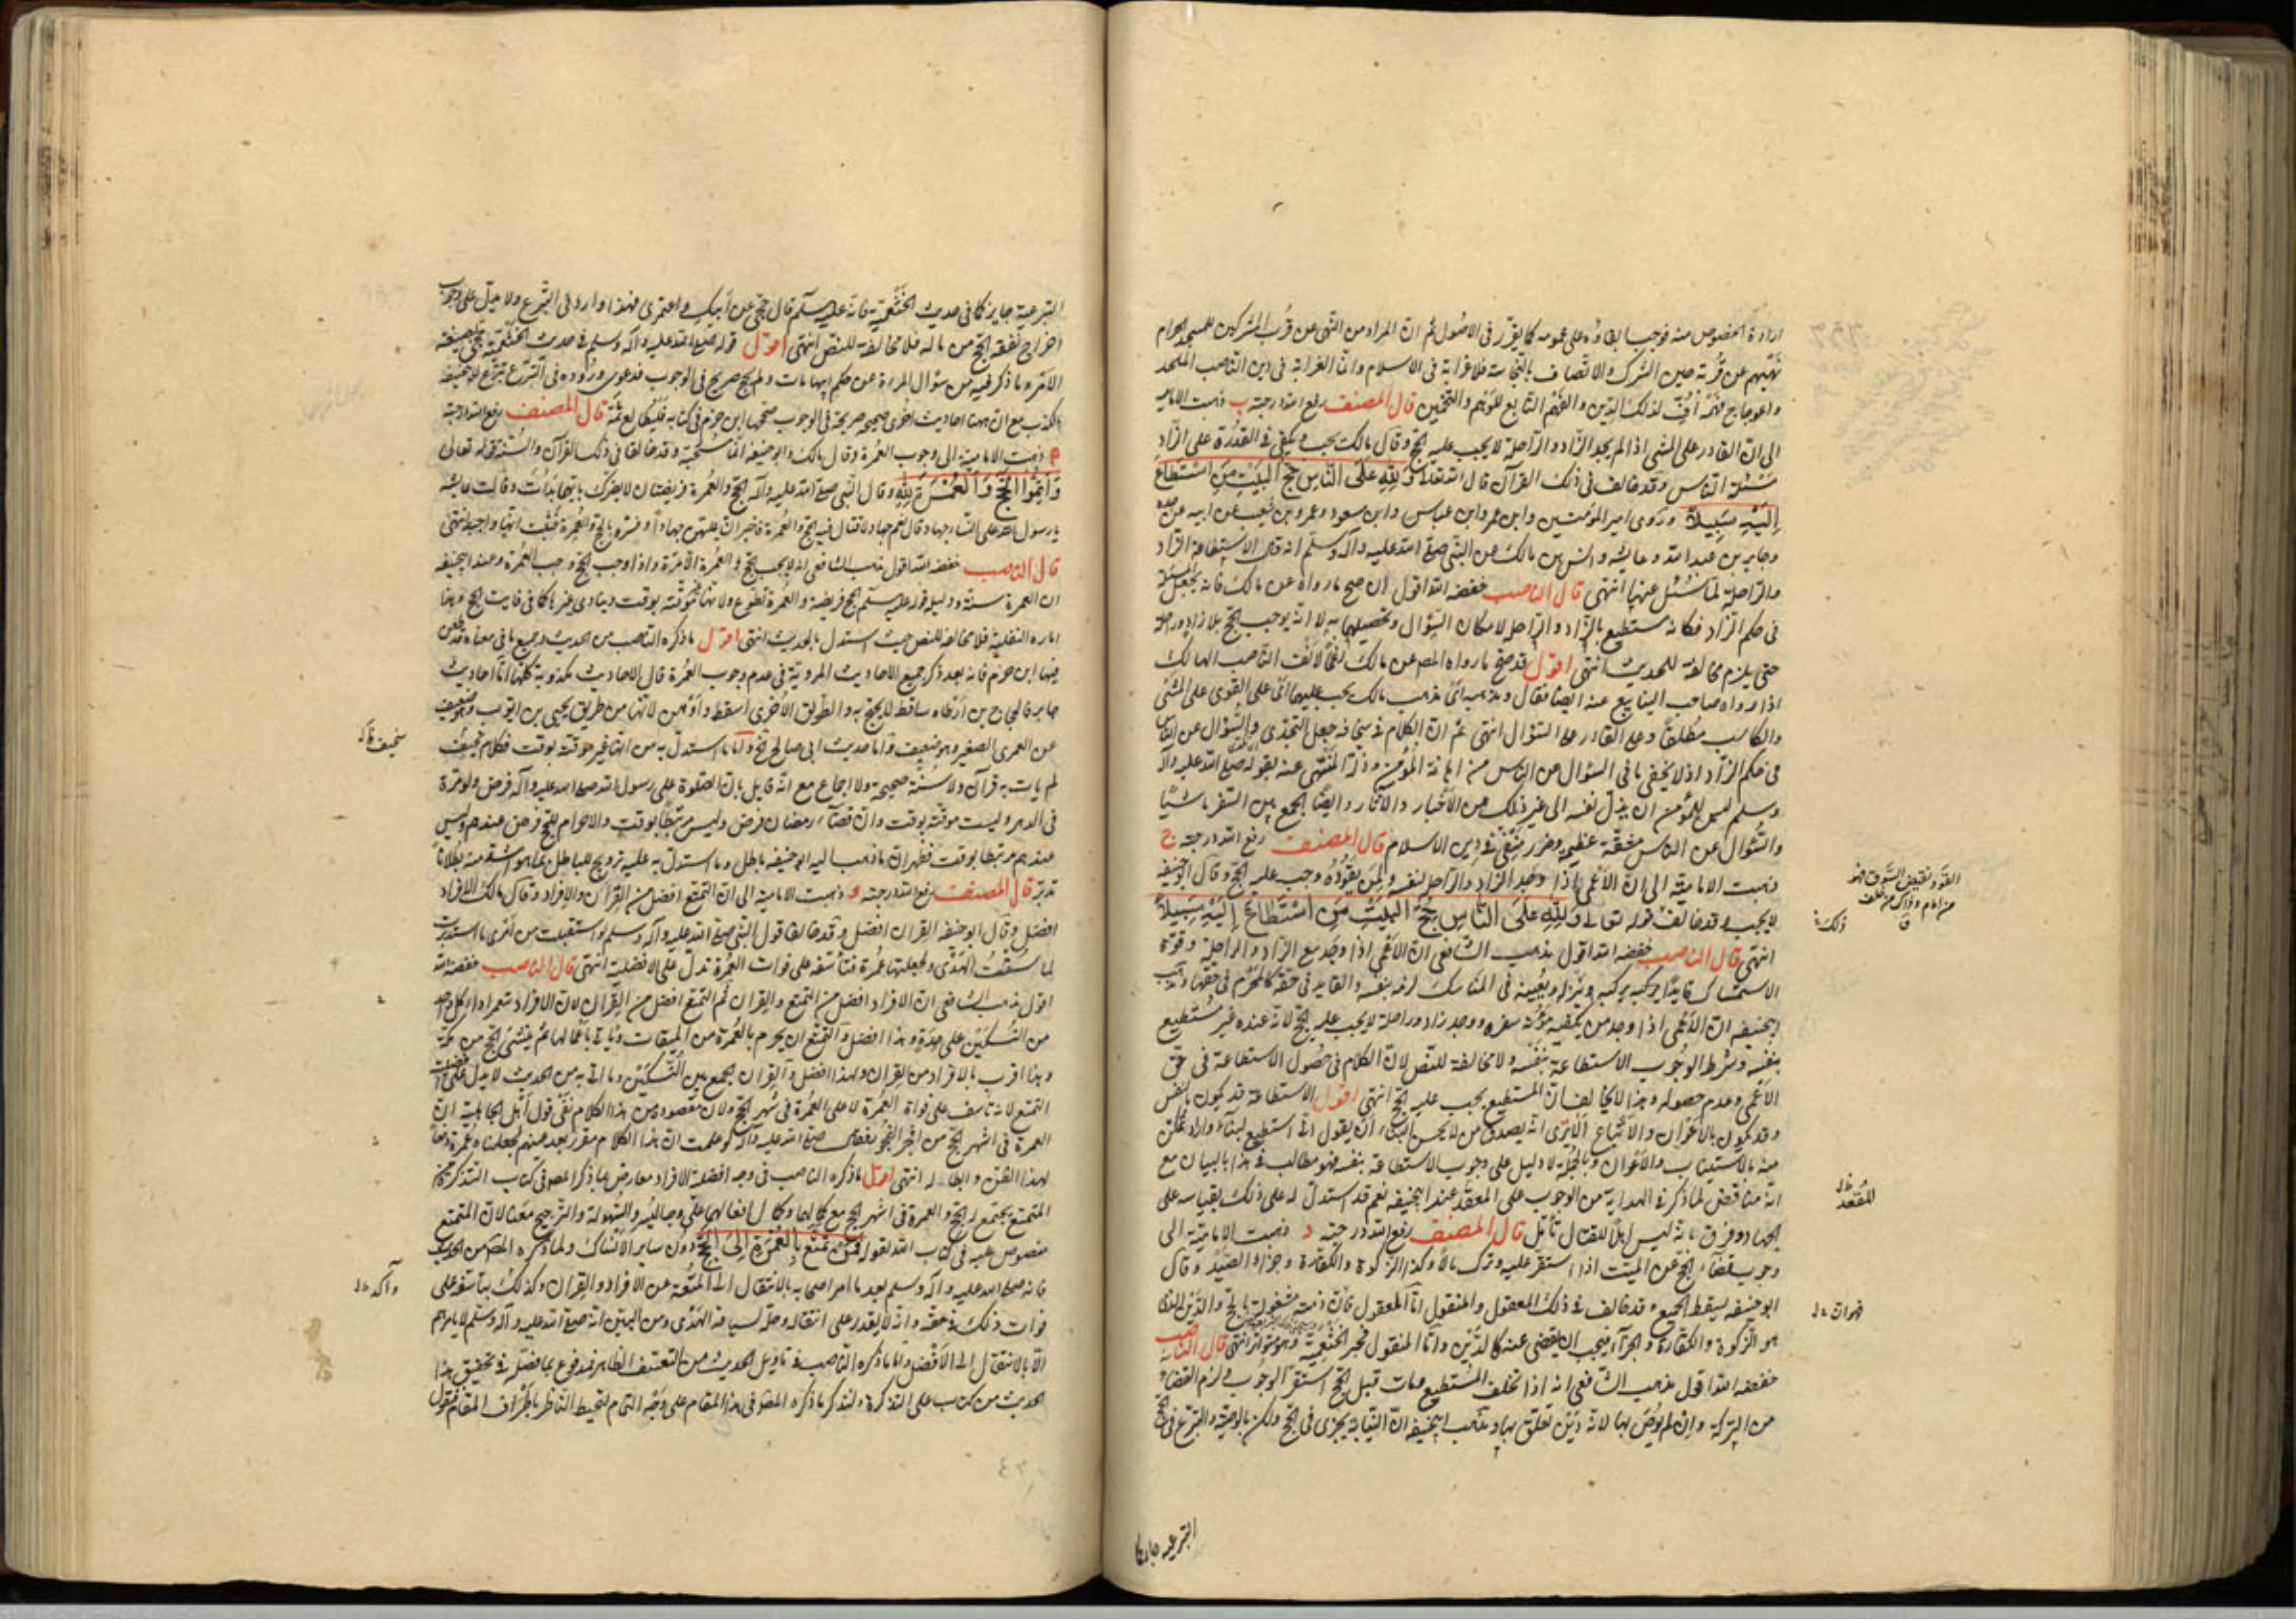 ارادة الخصوص منه فوجب ابقاؤه على عمومه كما تقرر فى الاصول ثم ان المراد من النهى عن قرب المشركين للمسجد الحرام
نهيهم عن قربه حين الشرك والاتصاف بالنجاسة فلا غرابة فى الاسلام وانما الغرابة فى دين الناصب الملحد
قال المصنف رفع الله درجته ب ذهبت الامامية
الى ان القادر على المشى اذا لم يجد الزاد والراحلة لا يجب عليه الحج وقال مالك يجب ويكفى فى القدرة على الزاد
مسئلة الناس وقد خالف فى ذلك القرآن قال الله تعالى وَلِلّهِ عَلَى النَّاسِ حِجُّ الْبَيْتِ مَنِ اسْتَطَاعَ
إِلَيْهِ سَبِيلاً وروى امير المؤمنين وابن عمر وابن عباس وابن مسعود وعمرو بن شعيب عن ابيه عن جده
وجابر بن عبد الله وعايشه وانس بن مالك عن النبى صلى الله عليه وآله وسلم انه قال الاستطاعة الزاد
والراحلة لما سئل عنها انتهى قال الناصب خفضه الله اقول ان صح ما رواه عن مالك فانه يجعل المسئلة
فى حكم الزاد فكانه مستطيع بالزاد والراحلة لامكان السؤال وتحصيلها به لا انه يوجب الحج بلا زاد وراحلة
حتى يلزم مخالفة للحديث انتهى اقول قد صح ما رواه المصه عن مالك رغما لانف الناصب الهالك
اذا رواه صاحب الينابيع عنه ايضا فقال ومذهب مالك يجب عليهما اى على القوى على المشى
والكاسب مطلقا وعلى القادر على السؤال انتهى ثم ان الكلام فى سخافة جعل التجدى والسؤال عن الناس
فى حكم الزاد اذ لا يخفى ما فى السؤال عن الناس من اهانة المؤمن وذلة المنتهى عنه بقوله صلى الله عليه وآله
وسلم ليس للمؤمن ان يذل نفسه الى غير ذلك من الاخبار والآثار وايضا الجمع بين السفر ماشيا
والسؤال عن الناس مشقة عظيمة وضرر منفى فى دين الاسلام قال المصنف رفع الله درجته ج
ذهبت الامامية الى ان الاعمى اذا وجد الزاد والراحلة لنفسه ولمن يقوده وجب عليه الحج وقال ابو حنيفه
لا يجب وقد خالف قوله تعالى وَلِلّهِ عَلَى النَّاسِ حِجُّ الْبَيْتِ مَنِ اسْتَطَاعَ إِلَيْهِ سَبِيلاً
انتهى قال الناصب خفضه الله اقول مذهب الشافعى ان الاعمى اذا وجد مع الزاد والراحلة وقوة
الاستمساك قايدا يركبه وينزله ويعينه فى المناسك لزمه بنفسه والقايد فى حقه كالمحرم فى حقها ومذهب
ابيحنيفه ان الاعمى اذا وجد من يكفيه مؤنة سفره ووجد زادا وراحلة لا يجب عليه الحج لانه عنده غير مستطيع
بنفسه وشرط الوجوب الاستطاعة بنفسه ولا مخالفة للنص لان الكلام فى حصول الاستطاعة فى حق
الاعمى وعدم حصوله وهذا لا يخالف ان المستطيع يجب عليه الحج انتهى اقول الاستطاعة قد يكون بالنفس
وقد يكون بالاعوان والاتباع الا يرى انه يصدق من لا يحسن البناء ان يقول انى استطيع لبناء دار
منه بالاستيناب والاعوان وبالجملة لا دليل على وجوب الاستطاعة بنفسه فهو مطالب فى هذا بالبيان مع
انه مناقض لما ذكر فى الهداية من الوجوب على المقعد عند ابيحنيفه نعم قد استدل له على ذلك بقياسه على
الجهاد وفرق بانه ليس اهلا للقتال تأمل قال المصنف رفع الله درجته د ذهبت الامامية الى
وجوب قضاء الحج عن الميت اذا استقر عليه وترك مالا وكذا الزكوة والكفارة وجزاء الصيد وقال
ابو حنيفه يسقط الجميع وقد خالف فى ذلك المعقول والمنقول اما المعقول فان ذمته مشغولة بالحج والدين الذى
هو الزكوة والكفارة والجزاء فيجب ان يقضى عنه كالدين واما المنقول فخبر الخثعمية وهو متواتر انتهى قال الناصب
خفضه الله اقول مذهب الشافعى انه اذا تخلف المستطيع ومات قبل الحج استقر الوجوب ولزم القضاء
من التركة وان لم يوص بها لانه دين تعلق بها ومذهب ابيحنيفه ان النيابة يجزى فى الحج ولكن بالوصية والتبرع فى الحج
للمقعد
التبرعية جايز كما
التبرعية جايز كما فى حديث الخثعمية فانه عليه السلم قال حجى عن ابيك واعتمرى فهذا وارد فى الشرع ولا يدل على وجوب
اخراج نفقة الحج من ماله فلا مخالفة للنص انتهى اقول قوله صلى الله عليه وآله وسلم فى حديث الخثعمية حجى بصيغة
الامر وما ذكر فيه من سؤال المرءة عن حكم ابيها مات ولم يحج صريح فى الوجوب فدعوى وروده فى التبرع
مع ان ههنا احاديث اخرى صحيحة صريحة فى الوجوب صححها ابن حزم فى كتابه فليطالع ثمة قال المصنف رفع الله درجته
ه ذهبت الامامية الى وجوب العمرة وقال مالك وابو حنيفه انها مستحبة وقد خالفا فى ذلك القرآن والسنة قوله تعالى
وَأَتِمُّوا الْحَجَّ وَالْعُمْرَةَ لِلّهِ وقال النبى صلى الله عليه وآله الحج والعمرة فريضتان لا يضرك بايهما بدأت وقالت عايشه
يا رسول الله هل على النساء جهاد قال نعم جهاد لا قتال فيه الحج والعمرة فاخبر ان عليهن جهادا وفسره بالحج والعمرة فثبت انها واجبة انتهى
قال الناصب خفضه الله اقول مذهب الشافعى انه لا يجب الحج والعمرة الا مرة واذا وجب الحج وجب العمرة وعند ابيحنيفه
ان العمرة سنة ودليله قوله عليه السلم الحج فريضة والعمرة تطوع ولانها غير موقتة بوقت ويتادى بنية غيرها كما فى فايت الحج وهذا
امارة النفلية فلا مخالفة للنص حيث استدل بالحديث انتهى اقول ما ذكره الناصب من الحديث وجميع ما فى معناه قد طعن
فيها ابن حزم فانه بعد ذكر جميع الاحاديث المروية فى عدم وجوب العمرة قال الاحاديث مكذوبة كلها اما احاديث
جابر فالحجاج بن ارطاة ساقط لا يحتج به والطريق الاخرى اسقط واوهن لانها من طريق يحيى بن ايوب وهو ضعيف
عن العمرى الصغير وهو ضعيف واما حديث ابى صالح الخ واما ما استدل به من انها غير موقتة بوقت فكلام سخيف
لم يات به قرآن ولا سنة صحيحة ولا اجماع مع انه قايل بان الصلوة على رسول الله صلى الله عليه وآله فرض ولو مرة
فى الدهر وليست موقتة بوقت وان قضاء رمضان فرض وليس مرتبطا بوقت والاحرام للحج فرض عندهم وليس
عندهم مرتبطا بوقت فظهر ان ما ذهب اليه ابو حنيفه باطل وما استدل به عليه ترويج للباطل بما هو اشد منه بطلانا
تدبر قال المصنف رفع الله درجته و ذهبت الامامية الى ان التمتع افضل من القران والافراد وقال مالك الافراد
افضل وقال ابو حنيفه القران افضل وقد خالفا قول النبى صلى الله عليه وآله وسلم لو استقبلت من امرى ما استدبرت
لما سقت الهدى ولجعلتها عمرة فتأسفه على فوات العمرة تدل على الافضلية انتهى قال الناصب خفضه الله
اقول مذهب الشافعى ان الافراد افضل من التمتع والقران ثم التمتع افضل من القران لان الافراد
من النسكين على حدة وهذا افضل والتمتع ان يحرم بالعمرة من الميقات وياتى باعمالها ثم ينشئ الحج من مكة
وهذا اقرب بالافراد من القران ولهذا افضل والقران الجمع بين النسكين وما اتى به من الحديث لا يدل على افضلية
التمتع لانه تاسف على فوات العمرة لا على العمرة فى شهر الحج ولان مقصوده من هذا الكلام نفى قول اهل الجاهلية ان
العمرة فى اشهر الحج من افجر الفجور فقال صلى الله عليه وآله لو علمت ان هذا الكلام مقرر بعد عندهم لجعلناه عمرة دفعا
لهذا الظن وابطاله انتهى اقول ما ذكره الناصب فى وجه افضلية الافراد معارض بما ذكره المصه فى كتاب التذكرة
المتمتع يجتمع له الحج والعمرة فى اشهر الحج مع كمالهما وكمال افعالهما على وجه اليسر والسهولة والترجيح معنا لان المتمتع
منصوص عليه فى كتاب الله لقوله فَمَن تَمَتَّعَ بِالْعُمْرَةِ إِلَى الْحَجِّ دون ساير الانساك ولما ذكره المصه من الحديث
فانه صلى الله عليه وآله وسلم بعد ما امر اصحابه بالانتقال الى المتعة عن الافراد والقران وكذلك بتأسفه على
فوات ذلك فى حقه وانه لا يقدر على انتقاله وحله لسياقه الهدى ومن البين انه صلى الله عليه وآله وسلم لا يامرهم
الا بالانتقال الى الافضل واما ما ذكره الناصب فى تاويل الحديث من التعسف الظاهر فمدفوع بما فصل فى تحقيق هذا
الحديث من كتاب على التذكرة ولنذكر ما ذكره المصه فى هذا المقام على وجه التمام ليحيط الناظر باطراف المقام فنقول